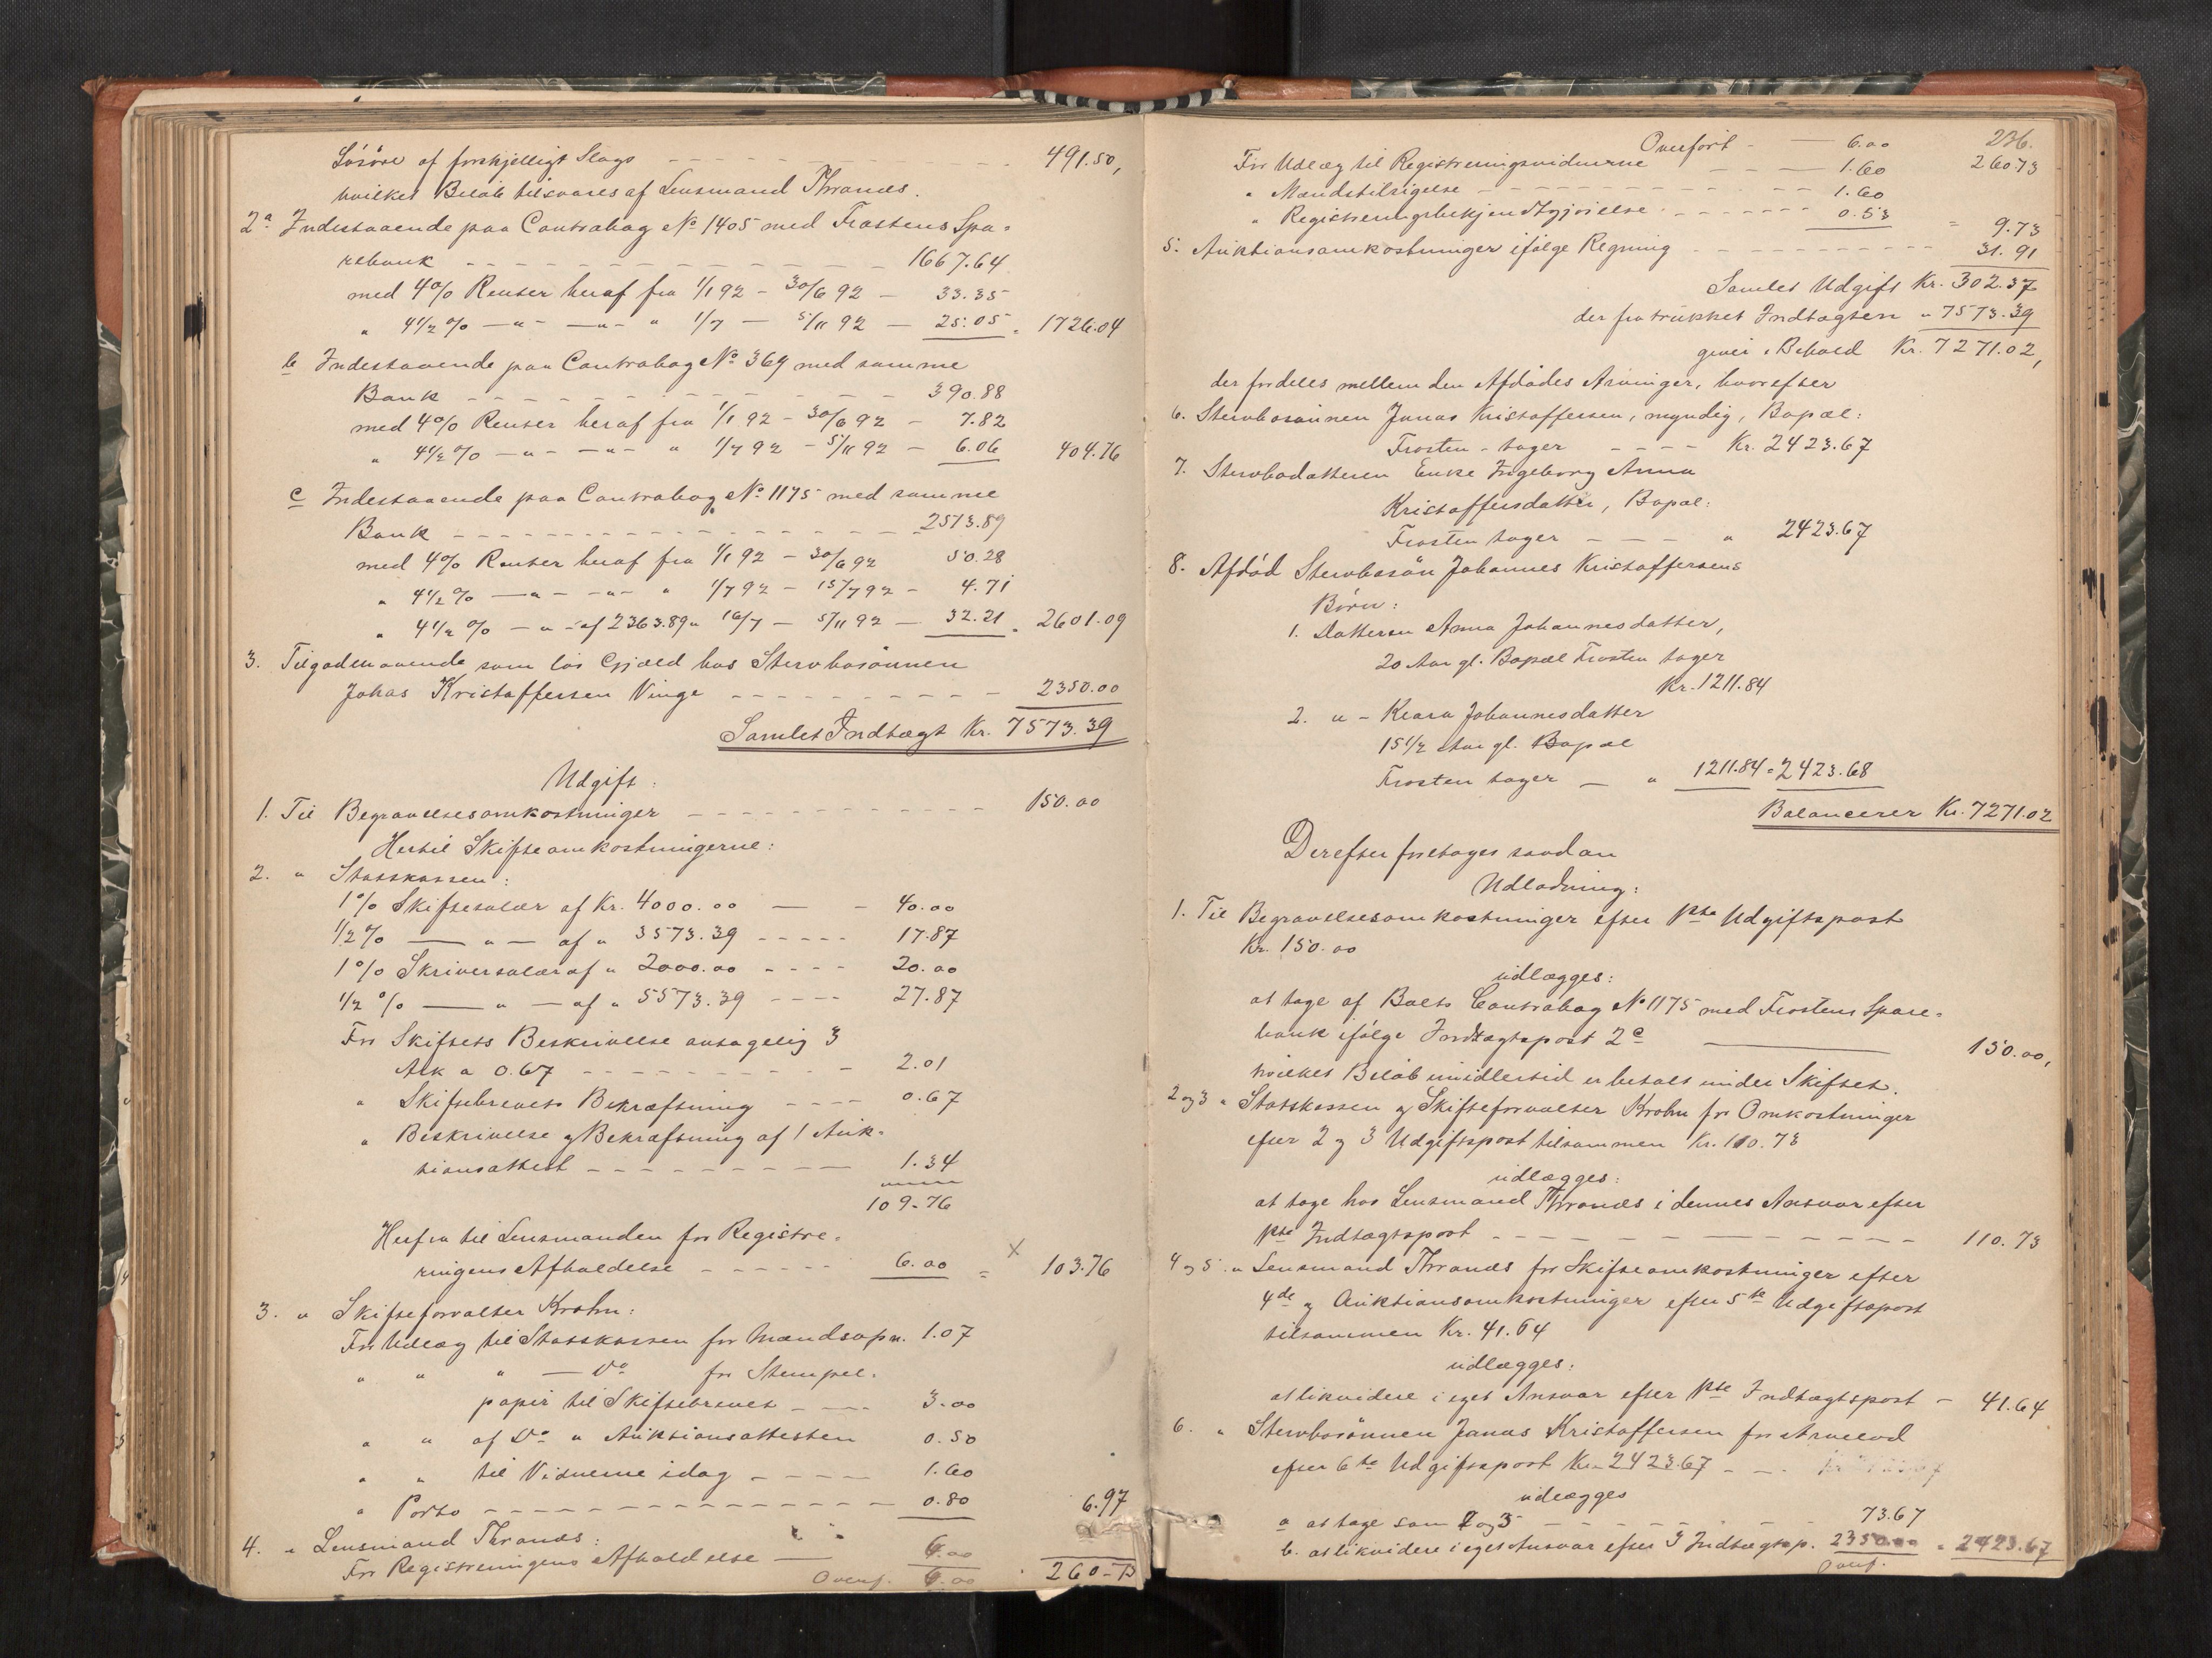 Lösöre af forskjelligt Slags - - - 491.50,
hvilket Belöb tilsvares af Lensmand Thranes.
2a Indestaaende paa Contrabog No 1405 med Frostens Spa-
rebank - - - 1667.64
med 4% Renter heraf fra 1/1 92 - 30/6 92 - 33.35
" 4 1/2 % - " - - " - " 1/7 - 5/11 92 - 25.05 = 1726.04
b Indestaaende paa Contrabog No 369 med samme
Bank - - - 390.88
med 4% Renter heraf fra 1/1 92 - 30/6 92 - 7.82
" 4 1/2 % - " - - " - " 1/7 92 - 5/11 92 - 6.06 404.76
c Indestaaende paa Contrabog No 1175 med samme
Bank - - - 2513.89
med 4% Renter heraf fra 1/1 92 - 30/6 92 50.28
" 4 1/2 % - " - - " - " 1/7 92 - 15/7 92 - 4.71
" 4 1/2 % - " - af 2363.89 " 16/7 - 5/11 92 - 32.21 = 2601.09
3. Tilgodehavende som lös Gjæld hos Stervbosönnen
Johas Kristoffersen Vinge - - - 2350.00
Samlet Indtægt Kr. 7573.39
Udgift:
1. Til Begravelsesomkostninger - - - 150.00
Hertil Skifteomkostningerne:
2. " Statskassen:
1% Skiftesalær af Kr. 4000.00 - - 40.00
1/2% - " - af " 3573.39 - - - 17.87
1% Skriversalær af " 2000.00 - - - 20.00
1/2 % - " - af " 5573.39 - - - 27.87
For Skiftets Beskrivelse antagelig 3
Ark a 0.67 - - - 2.01
" Skiftebrevets Bekræftning - - - 0.67
" Beskrivelse og Bekræftning af 1 Auk-
tionsattest - - - 1.34
109.76
Herfra til Lensmanden for Registre-
ringens Afholdelse - - - 6.00 = x 103.76
3. " Skifteforvalter Krohn:
For Udlæg til Statskassen for Mandsopn. 1.07
" " " - Do for Stempel-
papir til Skiftebrevet - - - 3.00
" " af Do " Auktionsattesten 0.50
" " til Vidnerne idag - - - 1.60
" Porto - - - 0.80 6.97
4. " Lensmand Thranes:
For Registreringens Afholdelse - 6.00
Overf. 6.00 260.73
236.
Overfört - - 6.00 260.73
For Udlæg til Registreringsvidnerne - - - 1.60
" Mandstilsigelse - - - 1.60
" Registreringsbekjendtgjörelse - - - 0.53 = 9.73
5. Auktionsomkostninger ifölge Regning - - - 31.91
Samlet Udgift Kr. 302.37
der fratrukket Indtægten " 7573.39
giver i Behold Kr. 7271.02,
der fordeles mellem den Afdödes Arvinger, hvorefter
6. Stervbosönnen Jonas Kristoffersen, myndig, Bopæl:
Frosten - tager - - - Kr. 2423.67
7. Stervbodatteren Enke Ingeborg Anna
Kristoffersdatter, Bopæl:
Frosten tager - - - " 2423.67
8. Afdöd Stervbosön Johannes Kristoffersens
Börn:
1. Datteren Anna Johannesdatter,
20 Aar gl. Bopæl Frosten tager
Kr. 1211.84
2. " - Klara Johannesdatter
15 1/2 Aar gl. Bopæl
Frosten tager - " 1211.84 = 2423.68
Balancerer Kr. 7271.02
Derefter foretages saadan
Udlodning:
1. Til Begravelsesomkostninger efter 1ste Udgiftspost
Kr. 150.00
udlægges:
at tage af Boets Contrabog No 1175 med Frostens Spare-
bank ifölge Indtægtspost 2c - 150.00,
hvilket Belöb imidlertid er betalt under Skiftet.
2 og 3 " Statskassen og Skifteforvalter Krohn for Omkostninger
efter 2 og 3 Udgiftspost tilsammen Kr. 110.73
udlægges:
at tage hos Lensmand Thranes i dennes Ansvar efter
1ste Indtægtspost - - - 110.73
4 og 5. " Lensmand Thranes for Skifteomkostninger efter
4de og Auktionsomkostninger efter 5te Udgiftspost
tilsammen Kr. 41.64
udlægges:
at likvidere i eget Ansvar efter 1ste Indtægtspost - 41.64
6. " Stervbosönnen Jonas Kristoffersen for Arvelod
efter 6te Udgiftspost Kr. 2423.67 - - -
udlægges
a at tage som 2 og 3 - - - 73.67
b. at likvidere i eget Ansvar efter 3 Indtægtsp. 2350.00 = 2423.67
Overf.